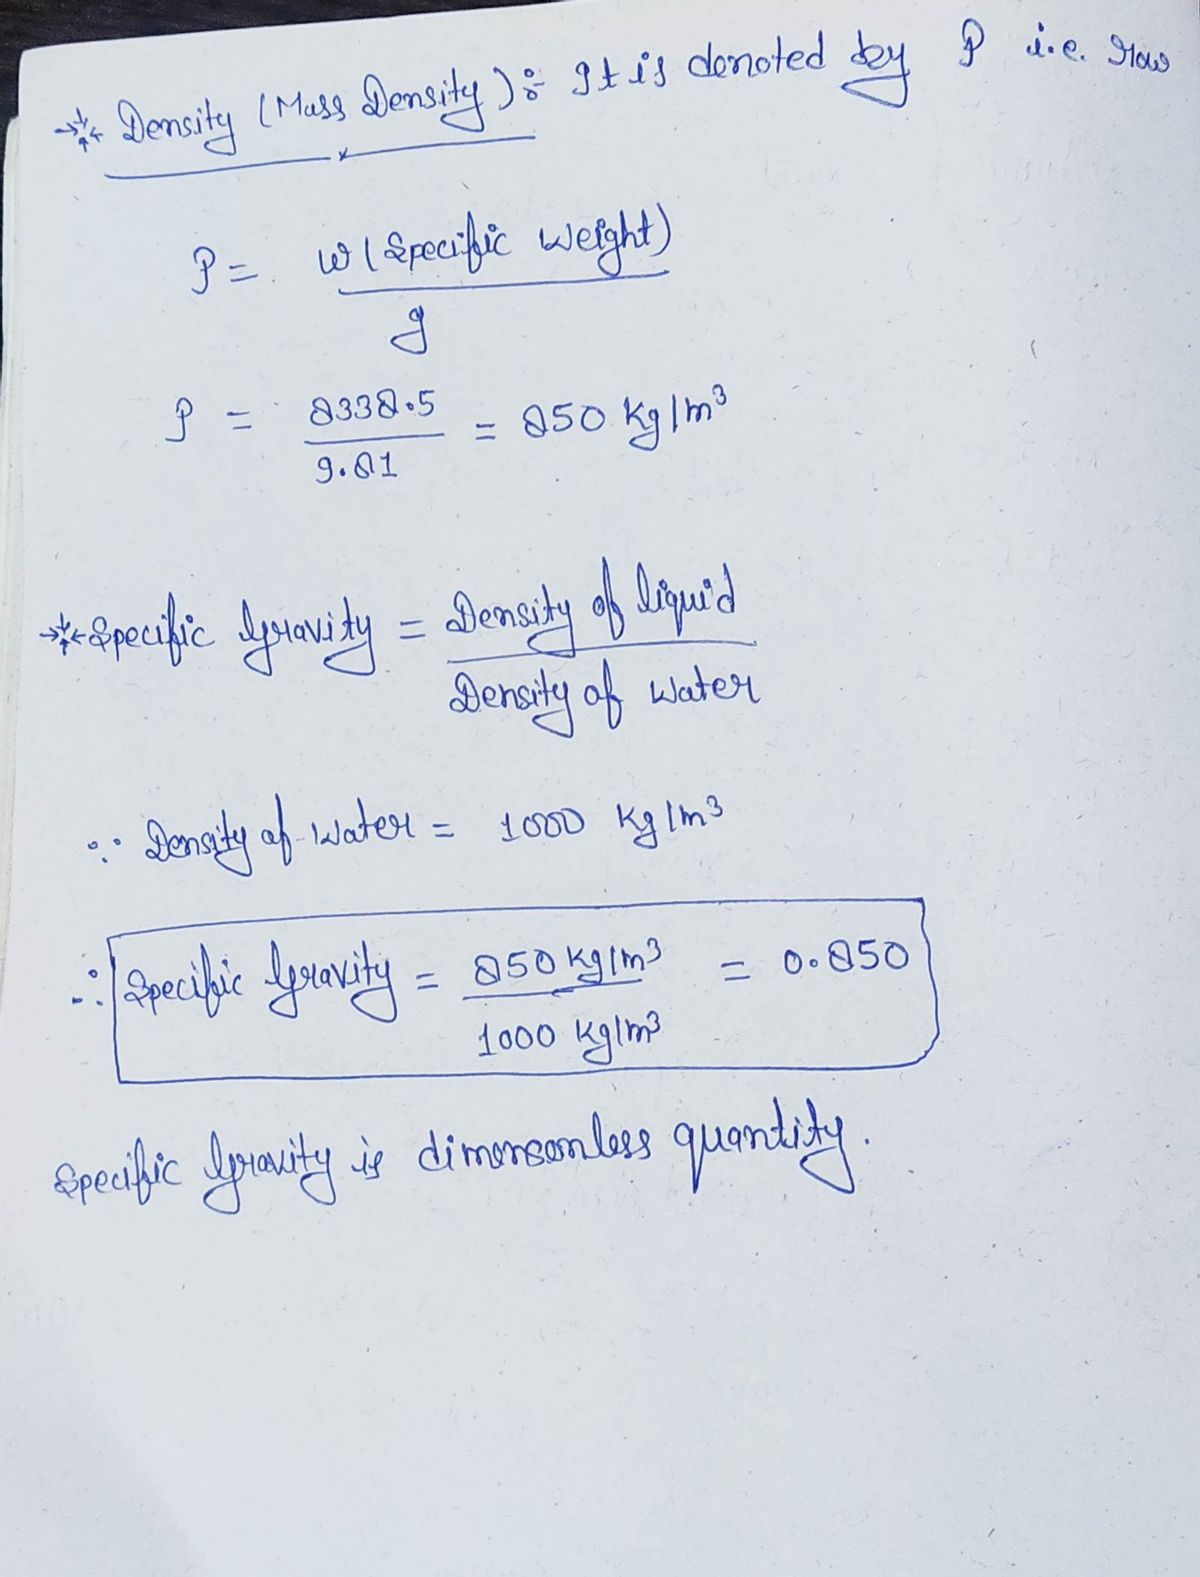 Density (Mass Density) :- It is denoted by ρ i.e. row
ρ = w (Specific Weight)
g
ρ = 8338.5 / 9.81 = 850 Kg/m³
Specific Gravity = Density of liquid
Density of Water
∵ Density of Water = 1000 Kg/m³
∴ Specific Gravity = 850 Kg/m³ / 1000 Kg/m³ = 0.850
Specific Gravity is dimensonless quantity.